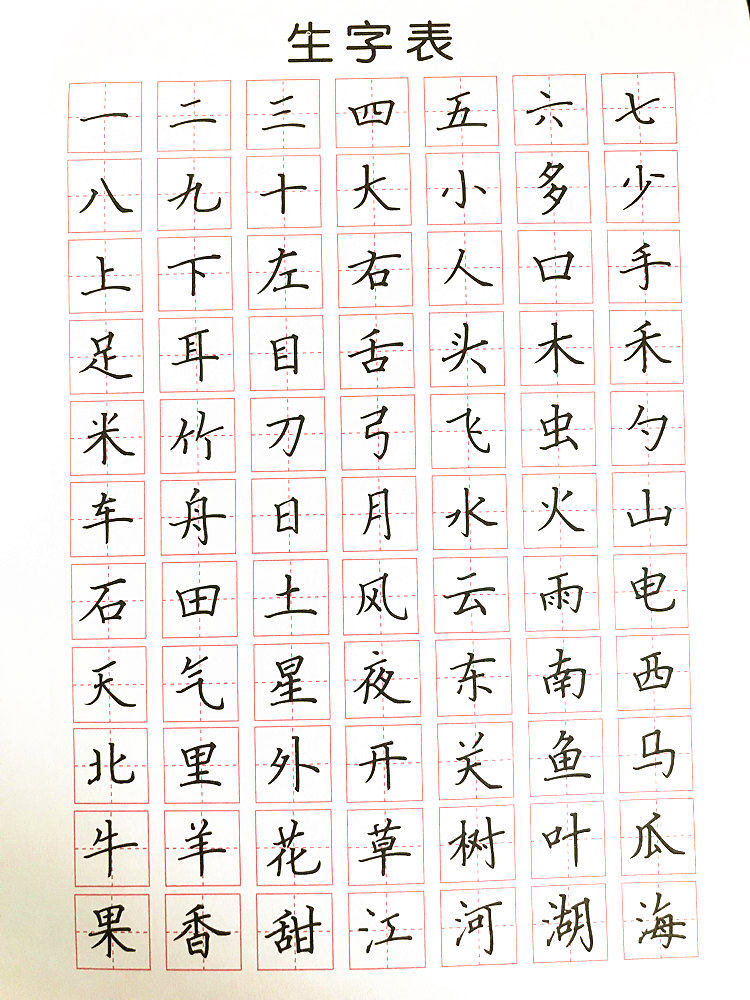 生字表
一 二 三 四 五 六 七
八 九 十 大 小 多 少
上 下 左 右 人 口 手
足 耳 目 舌 头 木 禾
米 竹 刀 弓 飞 虫 勺
车 舟 日 月 水 火 山
石 田 土 风 云 雨 电
天 气 星 夜 东 南 西
北 里 外 开 关 鱼 马
牛 羊 花 草 树 叶 瓜
果 香 甜 江 河 湖 海